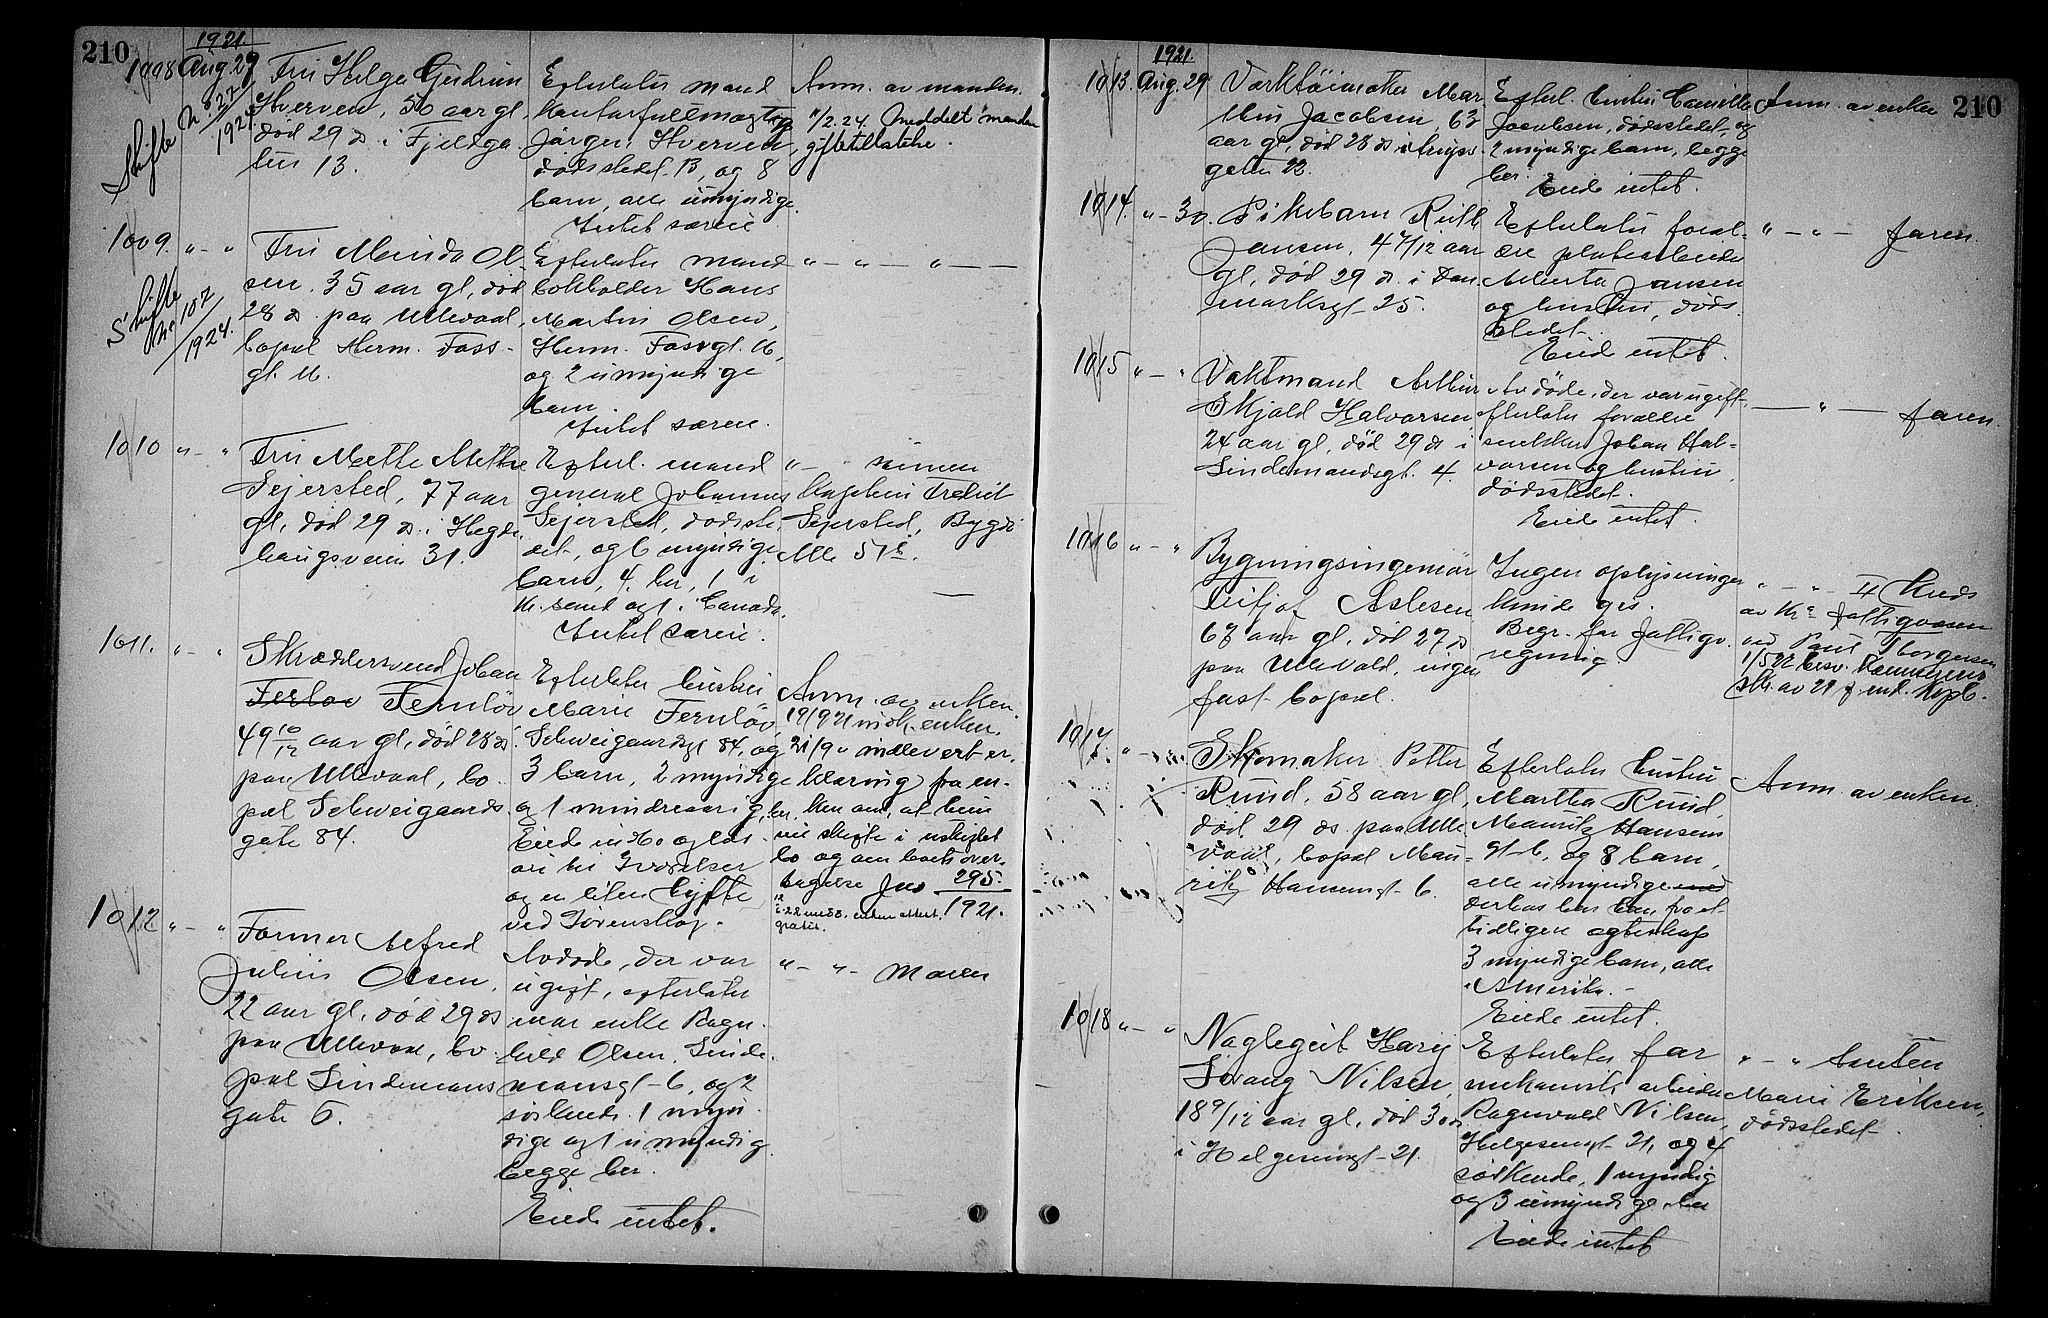 210
1921
1008 Aug. 29 Fru Helga Gudrun
Hverven, 50 aar gl,
død 29 ds i Fjeldga-
ten 13.
Skifte N. 827/1924
Efterlater mand
kontorfuldmægtig
Jørgen Hverven
dødsstedet 13, og 8
barn, alle umyndige.
Intet særeie
Anm. av manden.
11/2.24. Meddelt manden
giftetillatelse.
1009. " - " Fru Olsen
sen, 35 aar gl, død
28 ds. paa Ullevaal,
bopæl Herm. Foss-
gt. 16.
Skifte No 107/1924.
Efterlater mand
bokholder Hans
Martin Olsen,
Herm. Fossgt. 16,
og 2 umyndige
barn.
Intet særeie.
" - " - " - -
1010 " - " Fru Mette
Sejersted, 77 aar
gl, død 29 ds. i Hegde-
haugsveien 31.
Efterl. mand
general Johannes
Sejersted, dødsste-
det, og 6 myndige
barn, 4 her, 1 i
Kr.sand og 1 i Canada.
Intet særeie.
" - sønnen
kaptein Fredrik
Sejersted, Bygdø
Alle 51
1011. " - " Skræddersvend Johan
Fernløv
49 10/12 aar gl, død 28 ds.
paa Ullevaal, bo-
pæl Schweigaards
gate 84.
Efterlater hustru
Marie Fernløv,
Schweigaardsgt 84, og
3 barn, 2 myndige
og 1 mindreaarig, her.
Eiede
og en liten hytte
ved Sørenskog.
Anm. av enken.
19/9 21 mødt enken
21/9 " indlevert er-
klæring fra en-
ken om, at hun
vil skifte i uskiftet
bo og om boets over-
tagelse Jno 295/1921.
gratis.
1012 " - " Former Alfred
Julius Olsen,
22 aar gl, død 29 ds
paa Ullevaal, bo-
pæl Lindemans
gate 6.
Avdøde, der var
ugift, efterlater
mor enke Ragn-
hild Olsen, Linde-
mansgt 6, og 2
søskende, 1 myn-
dige og 1 umyndig
begge her.
Eiede intet.
" - " - moren
210
1921.
1013 Aug. 29 Værktøimaker Mar-
tin Jacobsen, 63
aar gl, død 28 ds i Krups-
gaten 22.
Efterl. hustru Camilla
Jacobsen, dødsstedet, og
2 myndige barn, begge
her.
Eiede intet.
Anm. av enken
1014. " - 30. Pikebarn Ruth
Jansen, 4 7/12 aar
gl, død 29 ds. i Dan-
marksgt 25.
Efterlater foræl-
dre platearbeider
Jansen
og hustru, døds-
stedet.
Eiede intet.
" - " - faren.
1015 " - " Vaktmand Arthur
Skjold Halvorsen
24 aar gl, død 29 ds i
Lindemandsgt. 4.
Avdøde, der var ugift,
efterlater forældre
snekker Johan Hal-
vorsen og hustru,
dødsstedet.
Eiede intet.
- " - faren.
1016 " - " Bygningsingeniør
Fritjof Aslesen
63 aar gl, død 27 ds
paa Ullevald, ingen
fast bopæl.
Ingen oplysninger
kunde gis.
Begr. for fattigv.
regning.
" - " - II Kreds
av Kr.a fattigvæsen
ved Paul Thorgersen
1/5 22 besv. Kæmnerens
skr. av 29 f. md. Kopb.
1017. " - " Skomaker Petter
Ruud, 58 aar gl,
død 29 ds. paa Ulle-
vaal, bopæl Mau-
ritz Hansensgt 6.
Efterlater hustru
Martha Ruud,
Mauritz Hansens
gt 6, og 8 barn,
alle umyndige
derhos har han fra et
tidligere ægteskap
3 myndige barn, alle
i Amerika.
Eiede intet.
Anm. av enken.
1018 " - " Naglegut Harry
Svang Nilsen,
18 9/12 aar gl, død 30 ds
i Helgesensgt 21.
Efterlater far
mekanisk arbeider
Ragnvald Nilsen,
Helgesensgt 21, og 4
søskende, 1 myndig
og 3 umyndige, her
Eiede intet
" - " tanten
Marie Eriksen,
dødsstedet